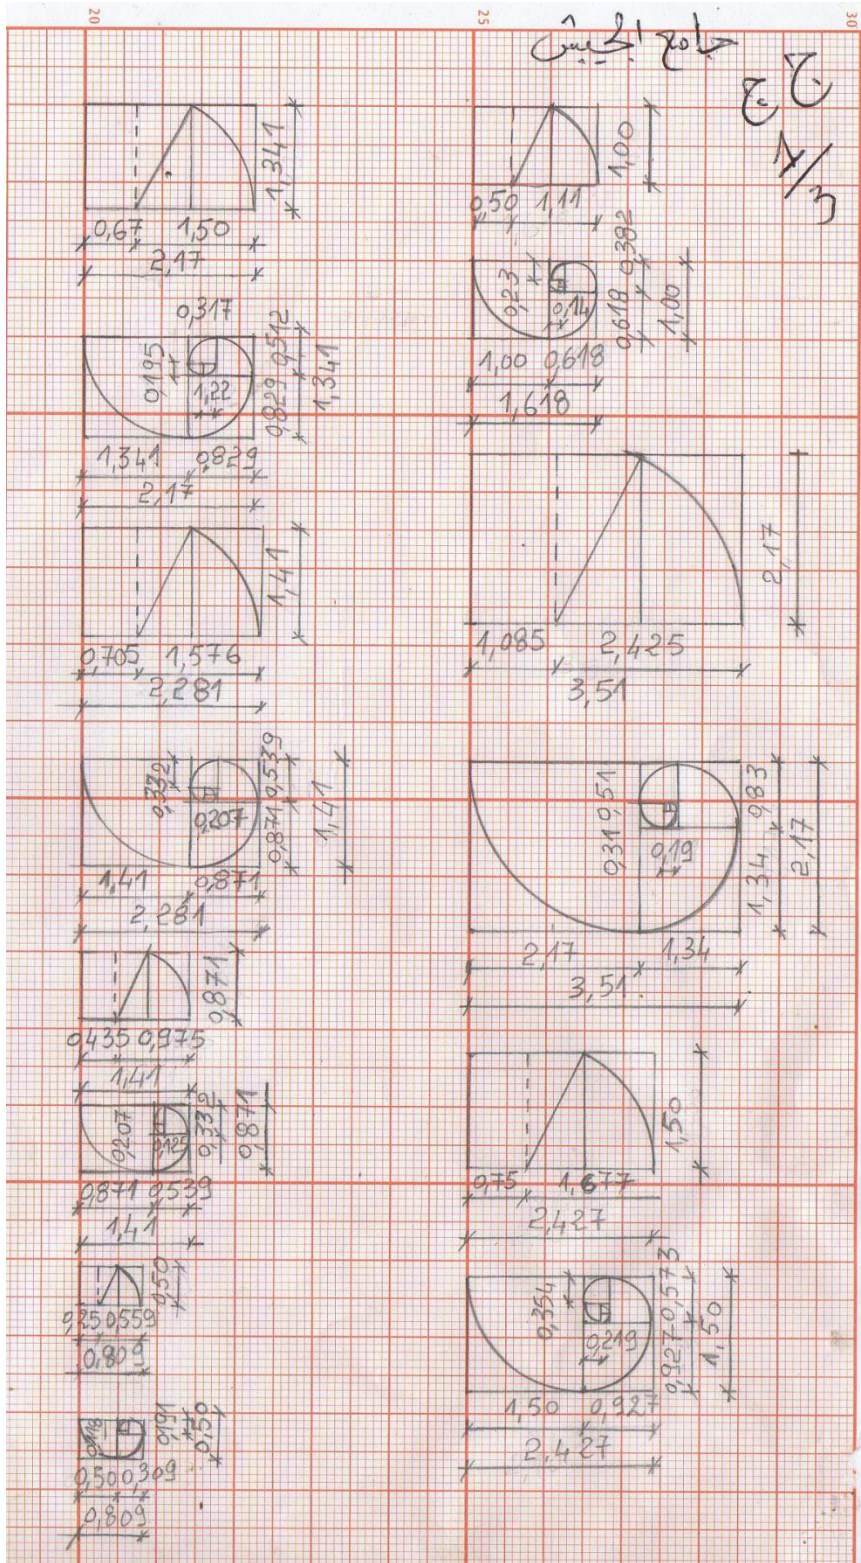 20
25
30
جامع الجيش
ج ج
1/3
1,341
0,67 1,50
2,17
0,317
0,512
0,195
1,22
0,829
1,341
1,341 0,829
2,17
1,41
0,705 1,576
2,281
0,539
0,332
0,207
0,871
1,41
1,41 0,871
2,281
0,871
0,435 0,975
1,41
0,332
0,207
0,125
0,871
0,871 0,539
1,41
0,50
0,25 0,559
0,809
0,191
0,118
0,50
0,50 0,309
0,809
1,00
0,50 1,11
0,382
0,23
0,14
0,618
1,00
1,00 0,618
1,618
2,17
1,085 2,425
3,51
0,51
0,83
0,31
0,19
1,34
2,17
2,17 1,34
3,51
1,50
0,75 1,677
2,427
0,573
0,354
0,219
0,927
1,50
1,50 0,927
2,427